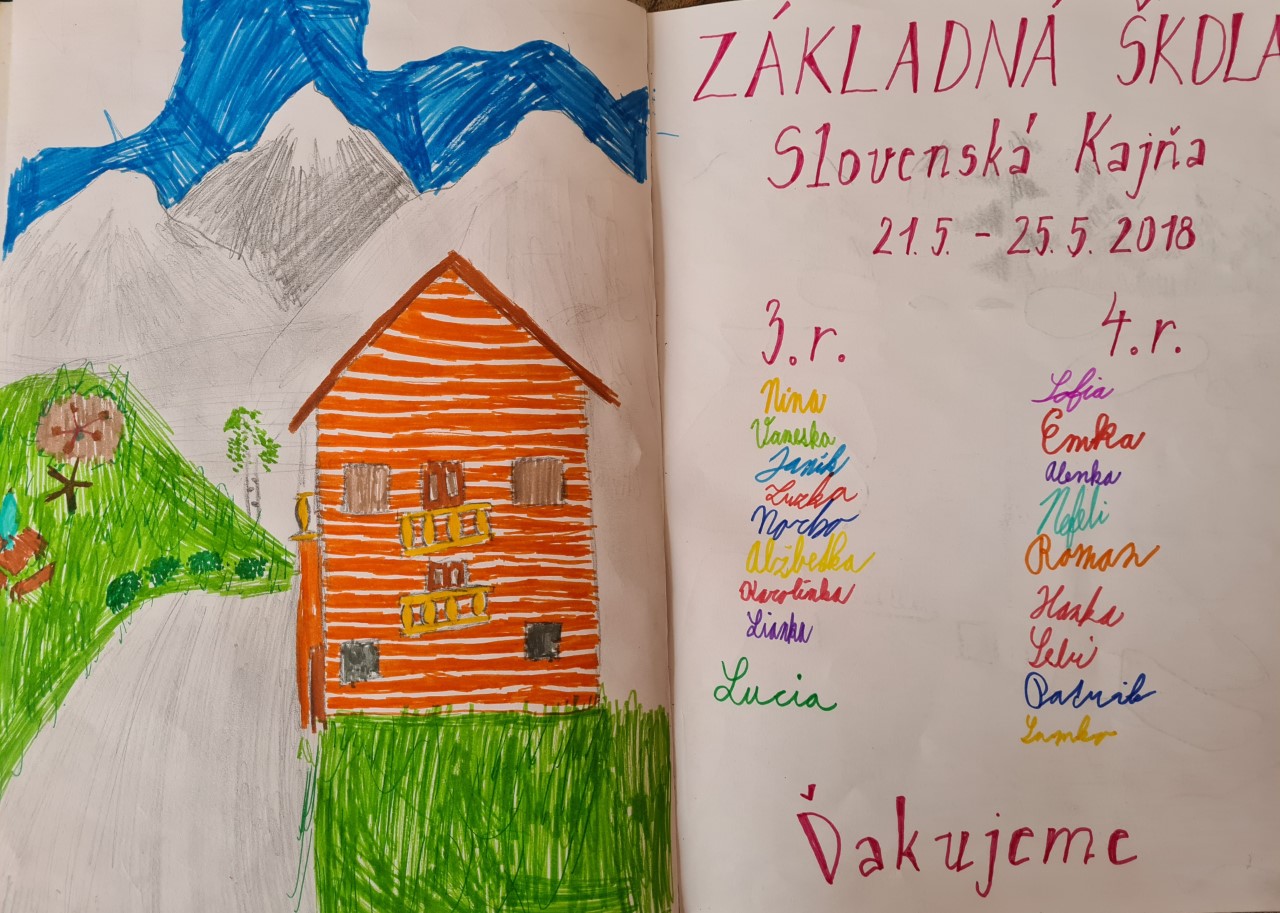 ZÁKLADNÁ ŠKOLA
Slovenská Kajňa
21.5. - 25.5. 2018
3.r.
Nina
Vaneska
Janik
Zuzka
Norbo
Alžbetka
Karolínka
Lianka
Lucia
4.r.
Sofia
Emka
Alenka
Nefeli
Roman
Hanka
Sebi
Patrik
Samko
Ďakujeme